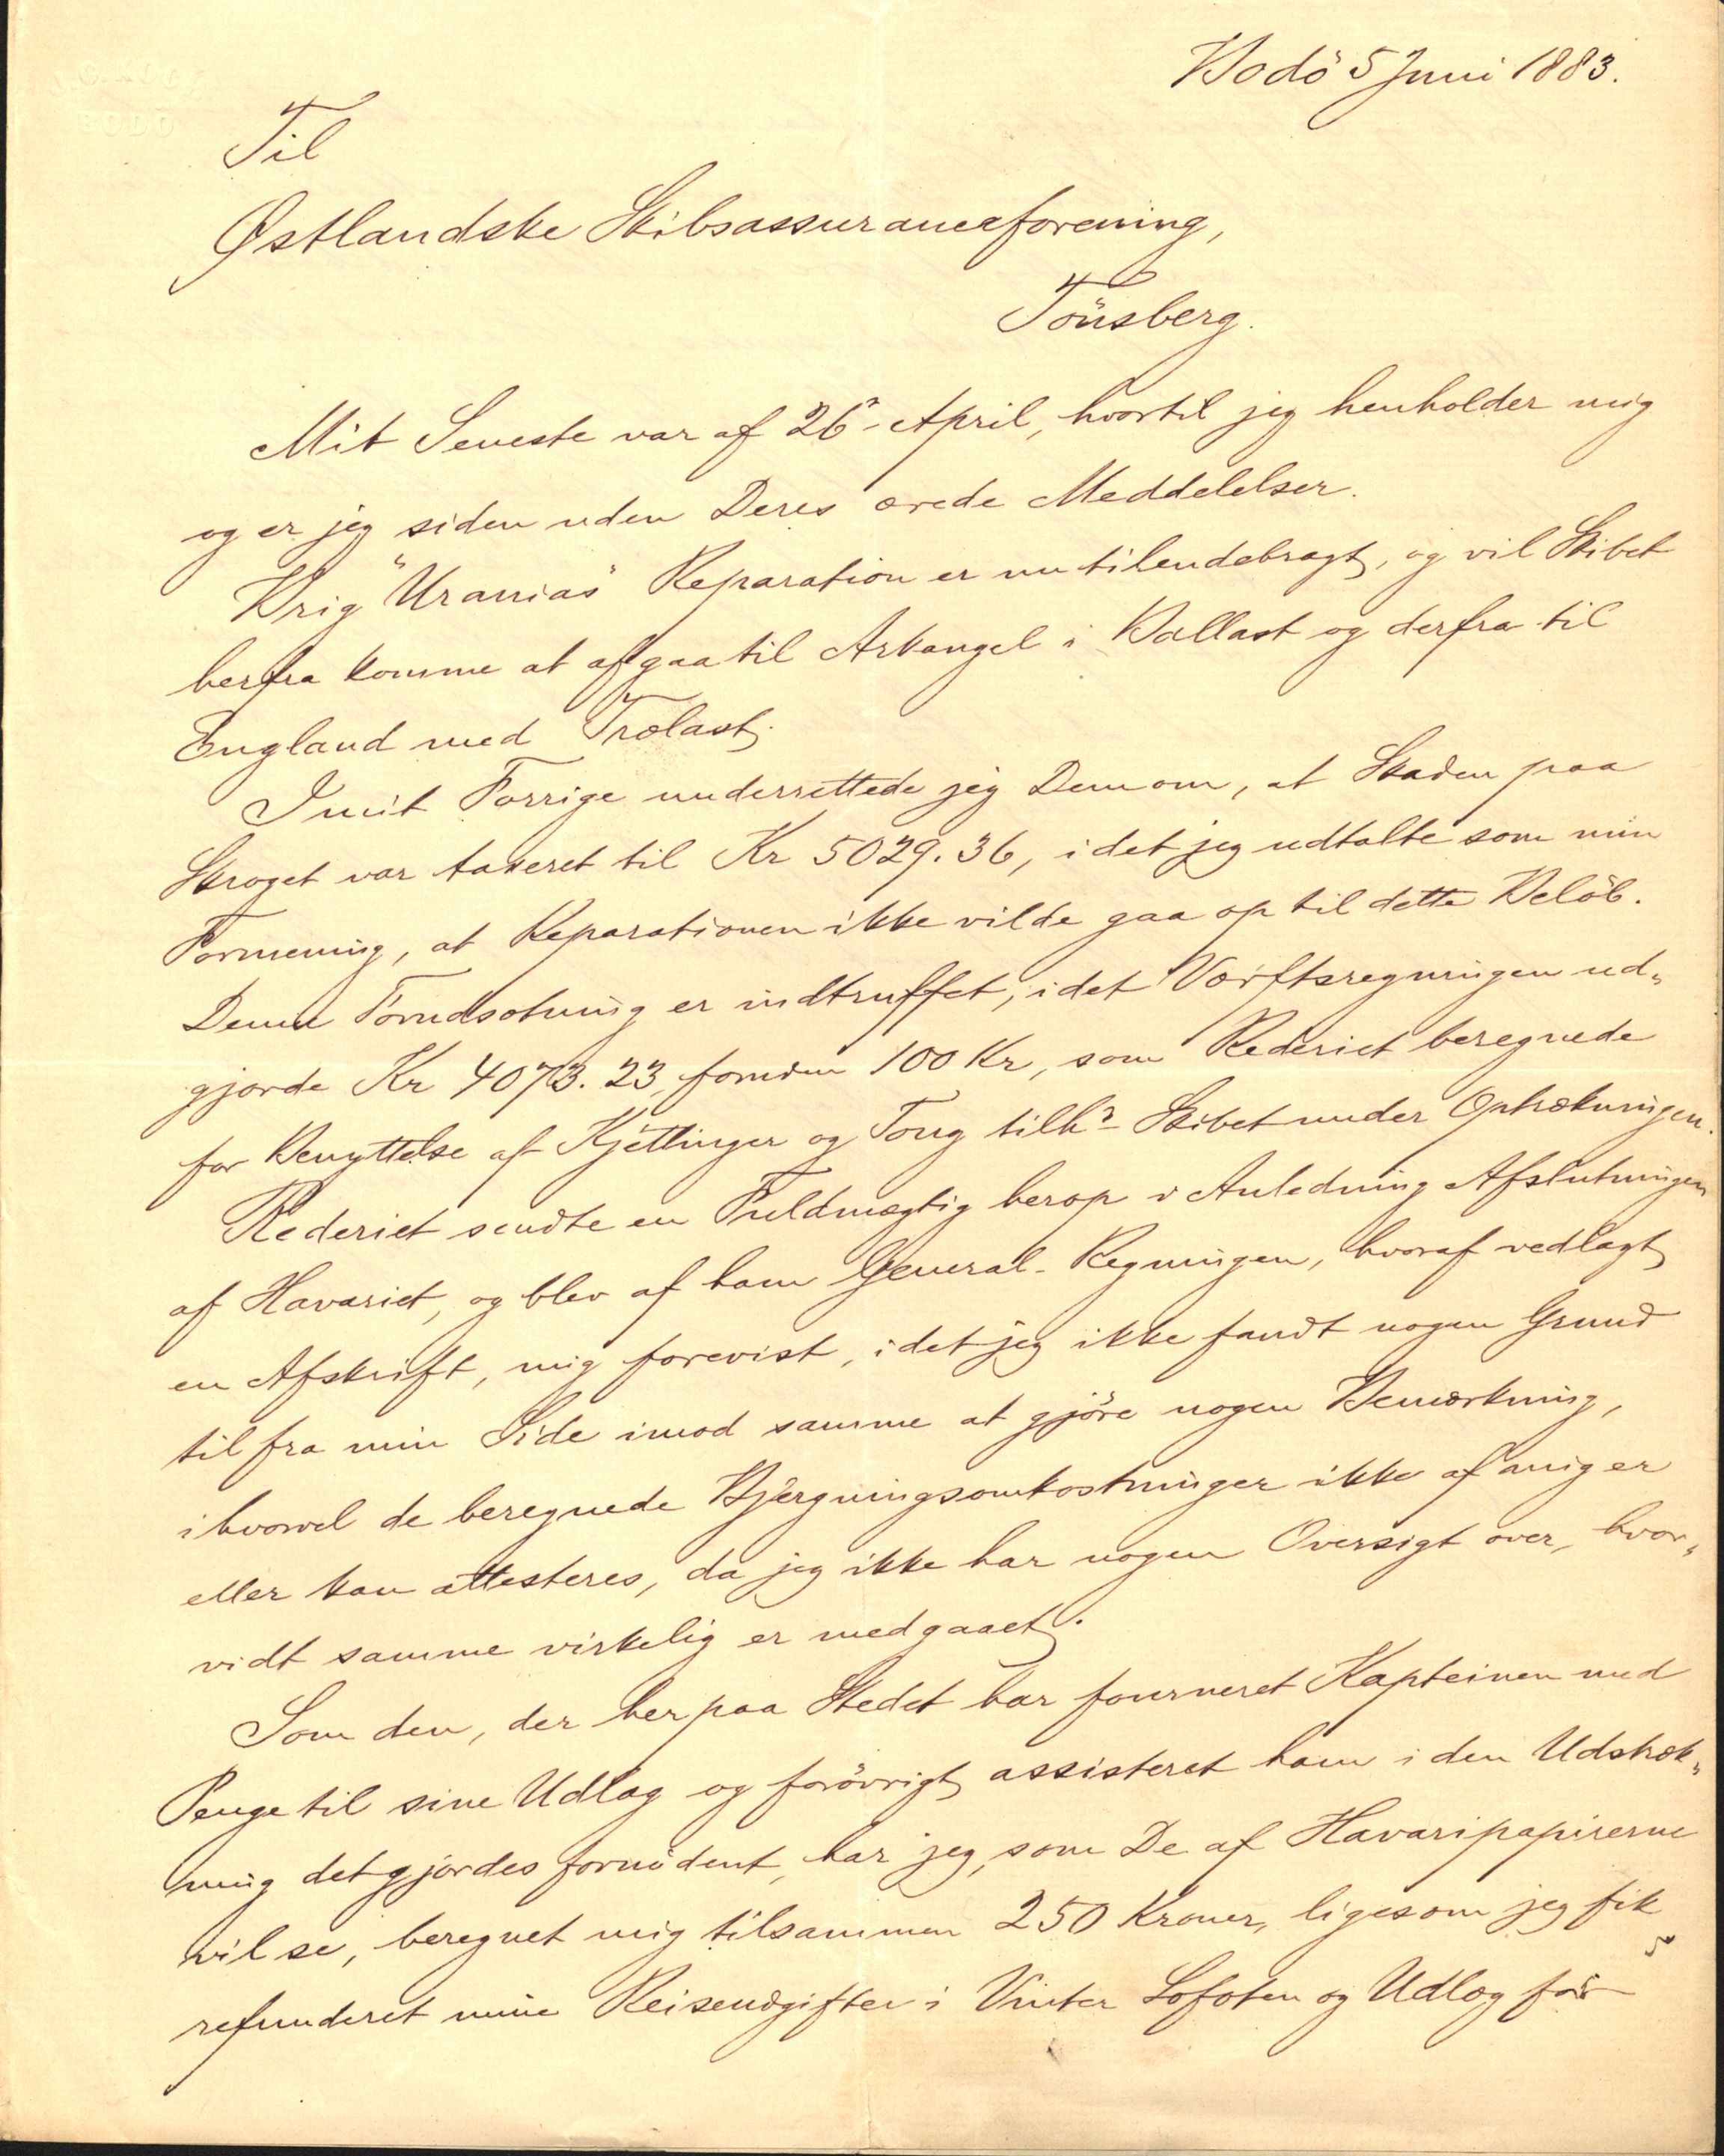 Bodö 5 Juni 1883.
Til
Østlandske Skibsassuranceforening,
Tönsberg.
Mit Seneste var af 26 April, hvortil jeg henholder mig
og er jeg siden uden Deres ærede Meddelelser.
Brig "Uranias" Reparation er nu tilendebragt, og vil Skibet
herfra komme at afgaa til Arkangel i Ballast og derfra til
England med Trælast.
I mit Forrige underrettede jeg Dem om, at Skaden paa
Skroget var taxeret til Kr 5029.36, idet jeg udtalte som min
Formening, at Reparationen ikke vilde gaa op til dette Belöb.
Denne Forudsætning er indtruffet, idet Værftsregningen ud„
gjorde Kr 4073.23, foruden 100 Kr, som Rederiet beregnede
for Benyttelse af Kjettinger og Toug tilhr Skibet under Ophækningen.
Rederiet sendte en Fuldmægtig herop i Anledning Afslutningen
af Havariet, og blev af ham General-Regningen, hvoraf vedlagt
en Afskrift, mig forevist, idet jeg ikke fandt nogen Grund
til fra min Side imod samme at gjöre nogen Bemærkning,
ihvorvel de beregnede Bjergningsomkostninger ikke af mig er
eller kan attesteres, da jeg ikke har nogen Oversigt over, hvor„
vidt samme virkelig er medgaaet.
Som den, der her paa Stedet har fourneret Kapteinen med
Penge til sine Udlæg og forövrigt assisteret ham i den Udstræk„
ning det gjordes fornödent, har jeg, som De af Havaripapirerne
vil se, beregnet mig tilsammen 250 Kroner, ligesom jeg fik
refunderet mine Reiseudgifter i Vinter Lofoten og Udlæg for